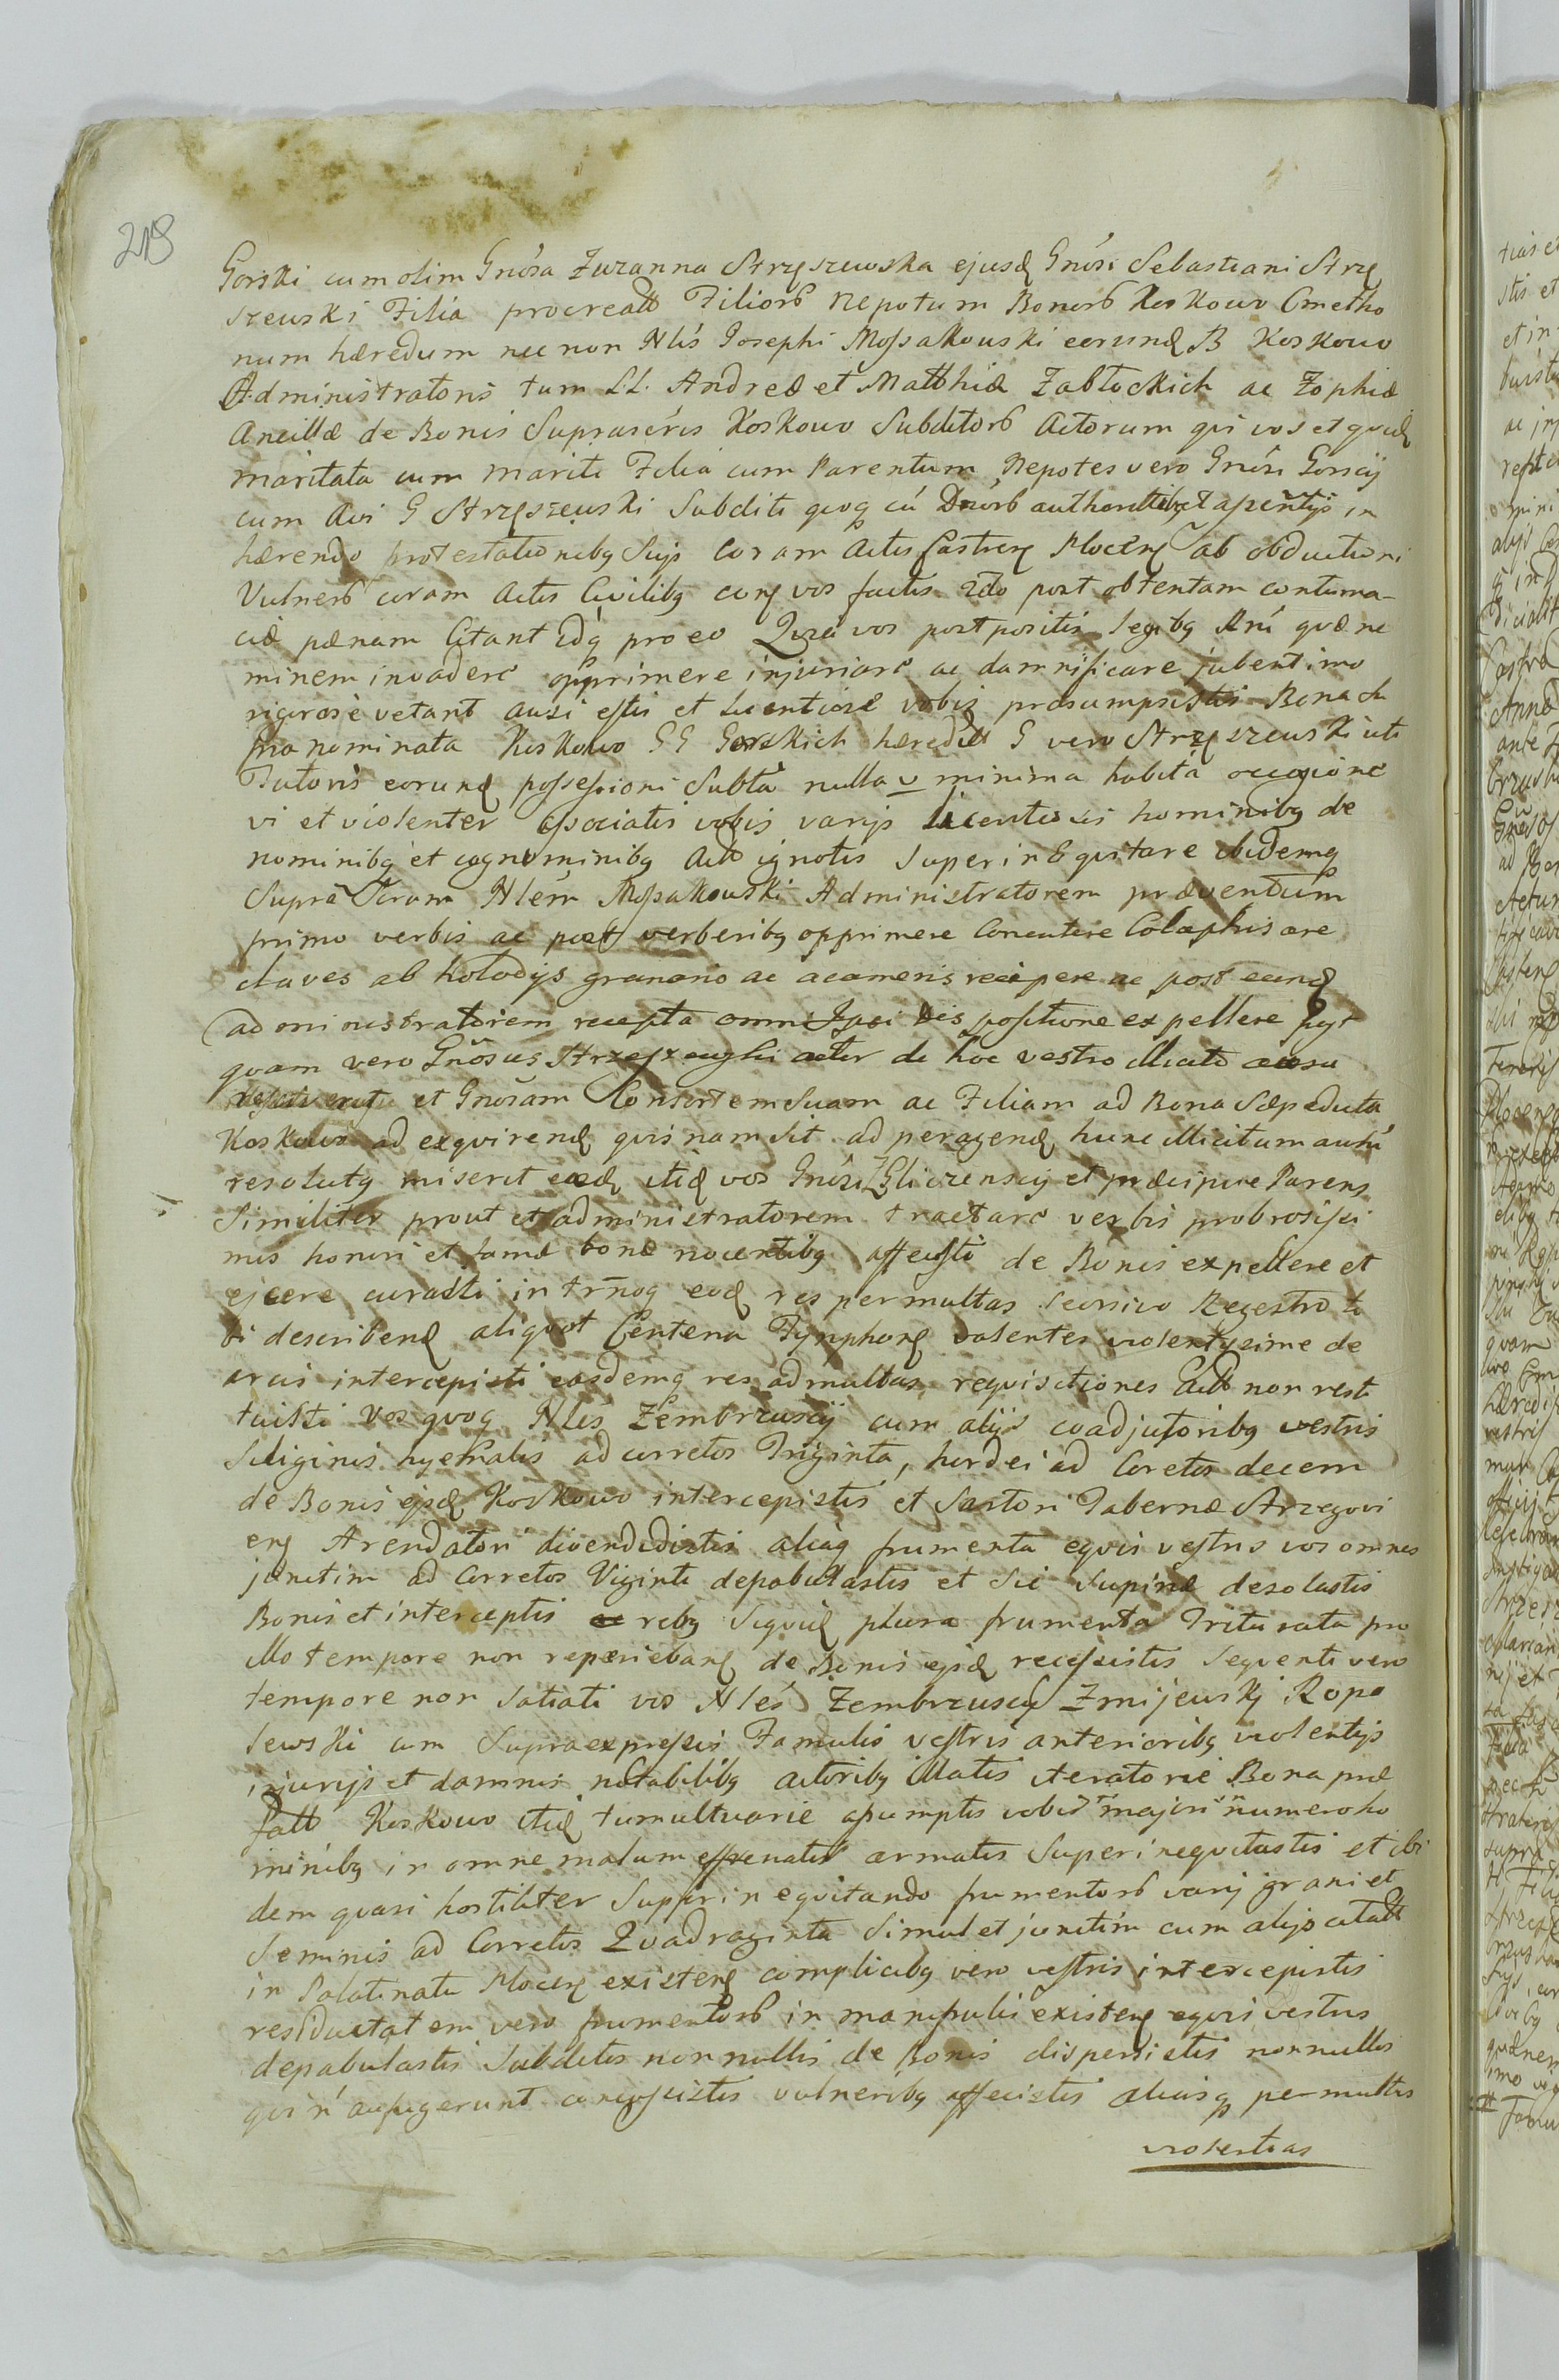 218
Gorski cum olim Gnósa Zuzanna Strzęszewska ejusd Gnósi Sebastiani Strzę
szewski Filia procreatt Filiorb Nepotum Bonorb Koskowo Cmetho
num hæredum nec non Nlis Josephi Mossakowski eorund B Koskowo
Administratoris tum LL Andreæ et Matthiæ Zabłockich ac Zophiæ
Ancillæ de Bonis Suprascris Koskowo Subditorb Actorum qui vos et quid
maritata cum mariti Filia cum Parentum Nepotes vero Gnósi Gorscij
cum Avi G Strzęszewski Subditi quoq cú Dnórb authoritibq et assentijs in
hærendo protestationibq Suijs Coram Actis Castren Plocen ab obductioni
Vulnerb coram Actis Civilibq con vos factis 2do post obtentam contuma-
ciæ pænam Citant idq pro eo Quia vos postpositis legibq Rni quæ ne
minem invadere opprimere injuriare ac damnificare jubent imo
rigorose vetant ausi estis et licentiose vobis præsumpsistis Bona
prænominata Koskowo GG Gorskich hæreditt G vero Strzęszewski uti
Tutoris eorund possessioni Subtá nulla v minima habita occasione
vi et violenter associatis vobis varijs licentiosis hominibq de
nominibq et cognominibq Actt ignotis Superinequitare ibidemq
Supra Scrum Nlem Mossakowski Administratorem præventum
primo verbis ac post verberibq opprimere Concutere Colaphisare
claves ab holodijs granario ac a cameris recipere ac post eund
administratorem recepta omni Ipsi dispositione expellere post
quam vero Gnosus Strzęszewski actor de hoc vestro illicito ausu
resciverit et Gnósam Consortem Suam ac Filiam ad Bona Sæpedicta
Koskowo ad exquirend quisnam sit ad peragend hunc illicitum ausú
resolutq miserit eæd itid vos Gnósi Zgliczenscij et præcipue Parens
Similiter prout et administratorem tractare verbis probrosissi
mis honori et famæ bonæ nocentibq affecisti de Bonis expellere et
ejicere curasti intrnoq eod res permultas seorsivo Regestro ti
bi describend aliquot Centena Tynphon valentes violentissime de
arcis intercepisti easdemq res ad multas requisitiones Actt non resti
tuisti Vos quoq Nles Zembrzuscij cum alijs coadjutoribq vestris
Siliginis hyemalis ad corretos Triginta, hordei ad Coretos decem
de Bonis ejsd Koskowo intercepistis et Sartori Tabernæ Strzegovi
en Arendatori divendidistis aliaq frumenta equis vestris vos omnes
junctim ad Corretos Viginti depabulastis et Sic Supinæ desolastis
Bonis et interceptis rebq Siquid plura frumenta Triturata pro
illo tempore non reperiebant de Bonis ejsd recessistis Sequenti vero
tempore non Satiati vos Nles Zembrzuscij Zmijewskj Ropo
lewski cum Supraexpressis Famulis vestris anterioribq violentijs
injurijs et damnis notabilibq actoribq illatis iteratorie Bona præ
fatt Koskowo itid tumultuarie assumptis vobis majori numero ho
minibq in omne malum effrenatis armatis Superinequitastis et ibi
dem quasi hostiliter Superinequitando frumentorb varij grani et
Seminis ad Corretos Quadraginta Simul et junctim cum alijs citatt
in Palatinatu Plocen existen complicibq vero vestris intercepistis
residuitatem vero frumentorb in manipulis existen equis vestris
depabulastis Subditos nonnullis de Bonis dispersistis nonnullos
qui ń aufugerunt concussistis vulneribq affecistis aliasq permultas
violentias